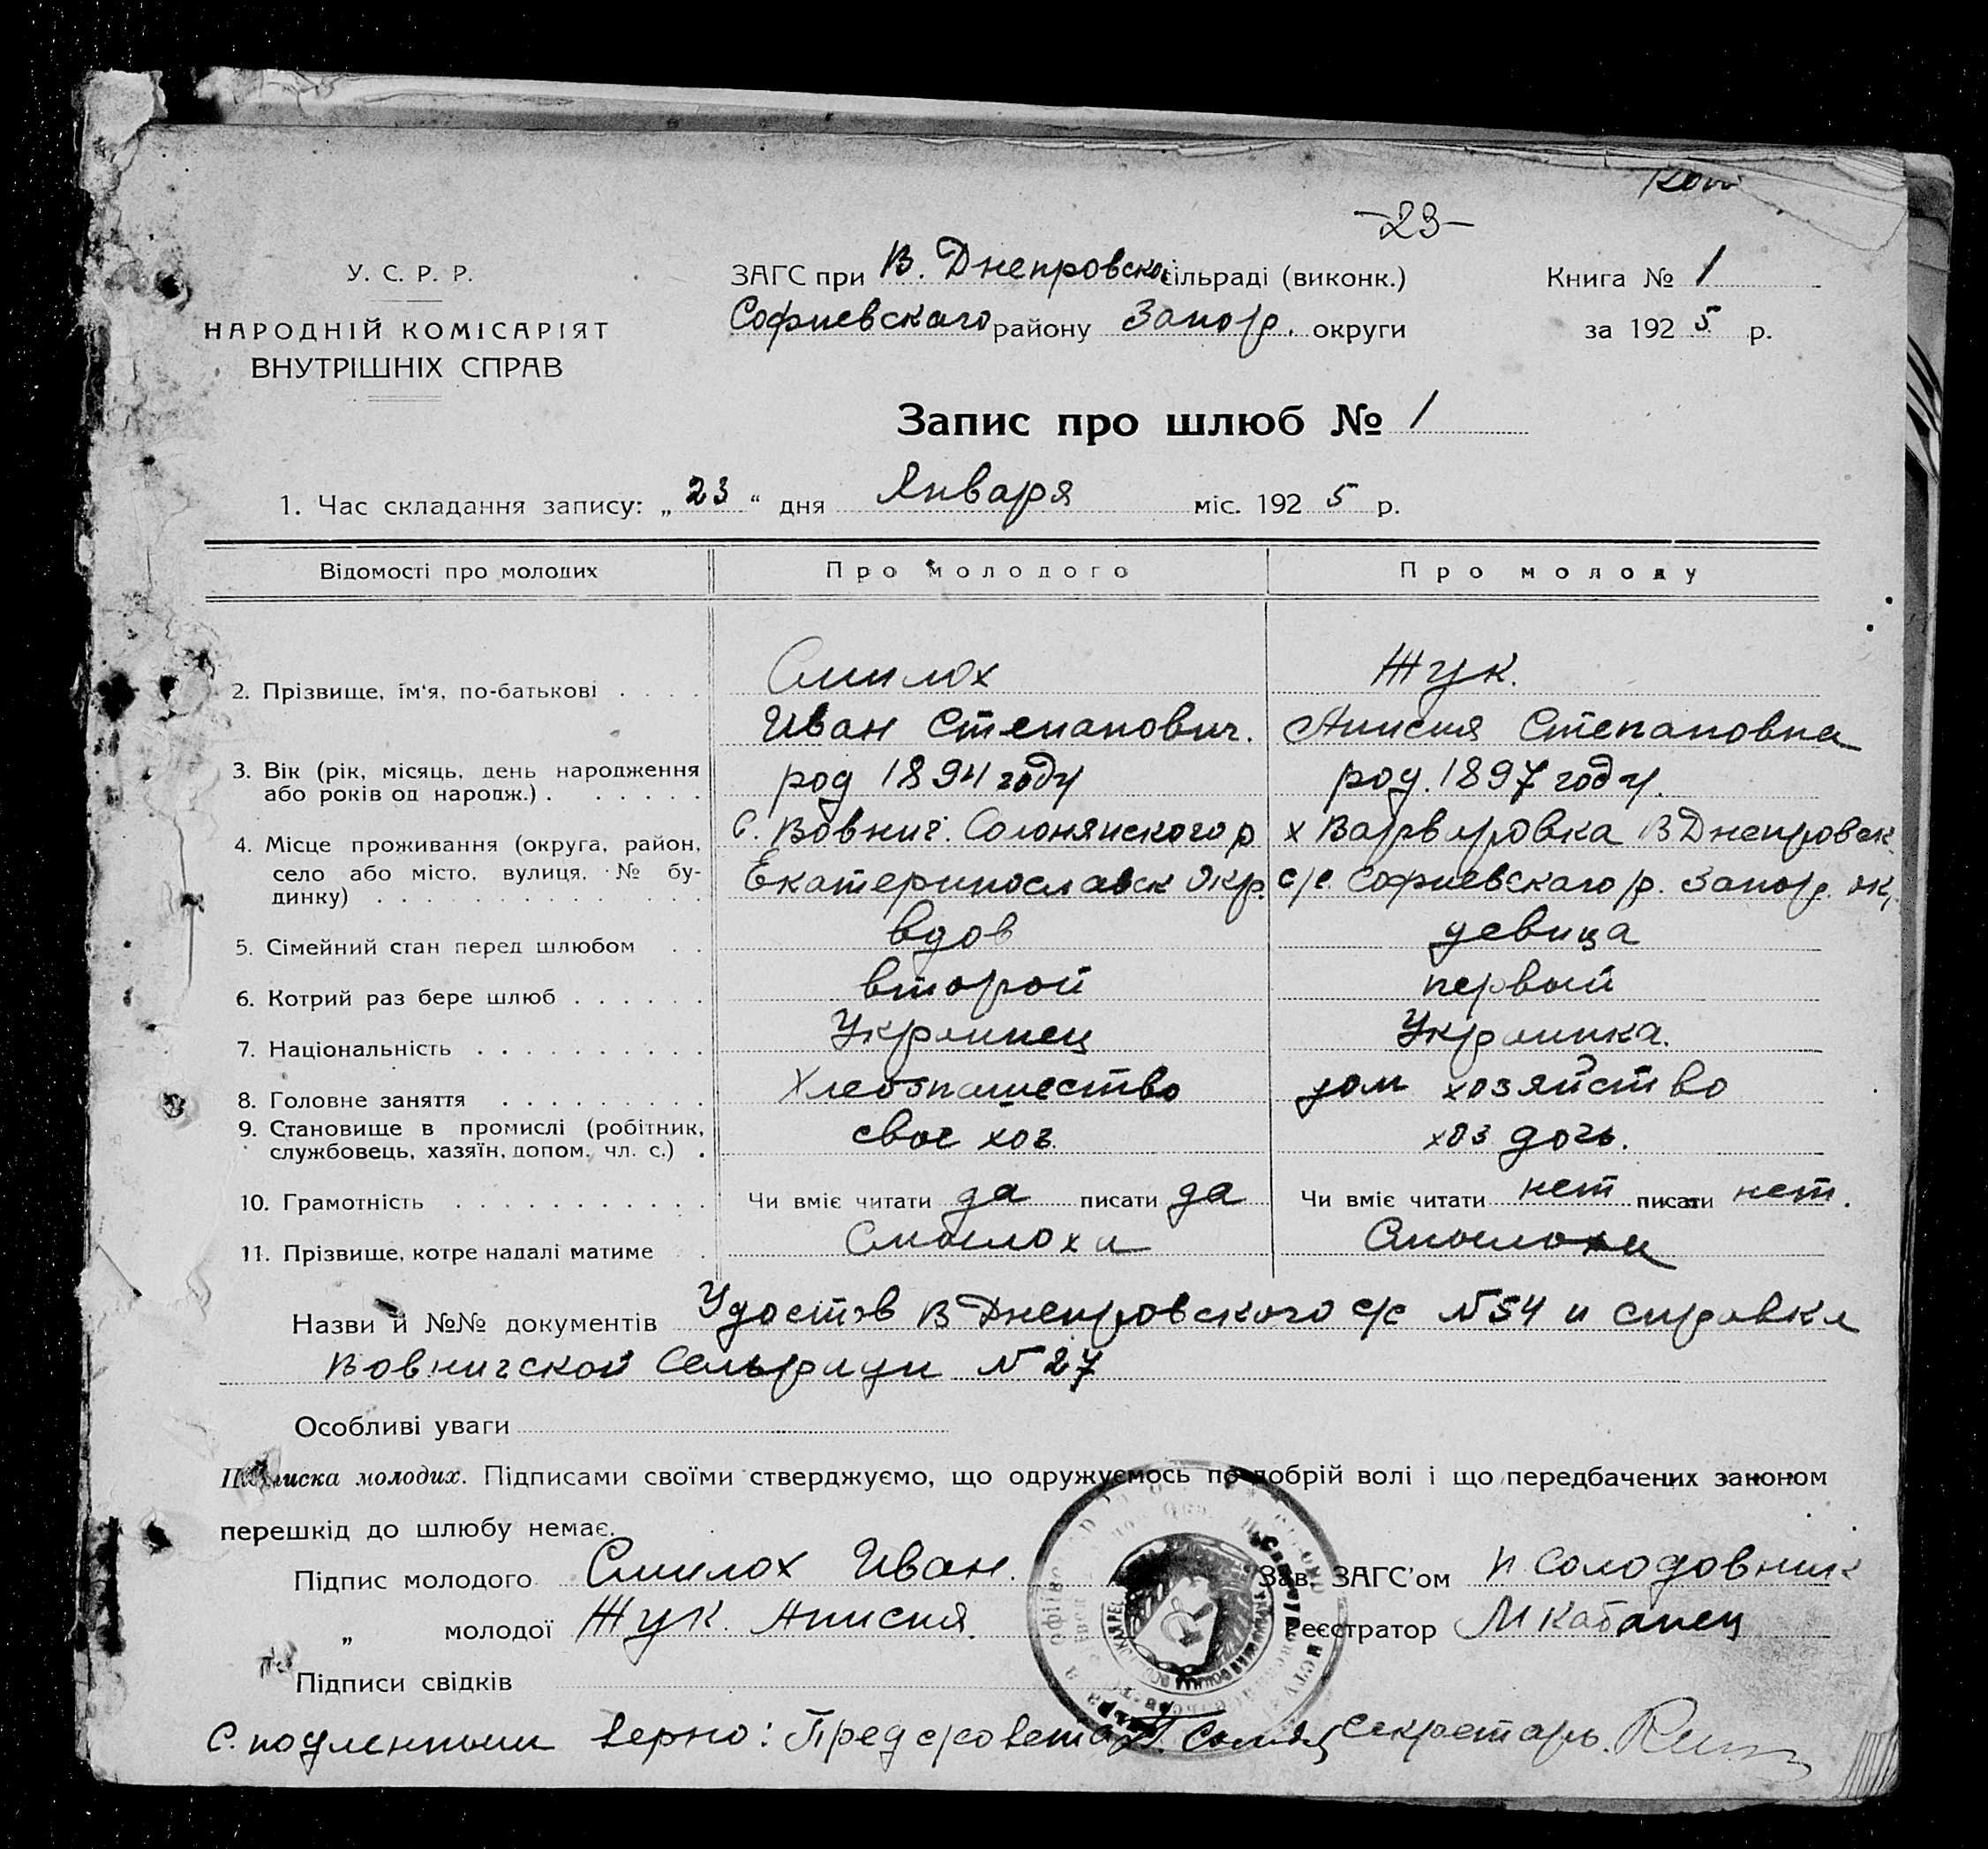 Копи
-23-
У. С. Р. Р.
НАРОДНІЙ КОМІСАРІЯТ
ВНУТРІШНІХ СПРАВ
ЗАГС при В. Днепровской сільраді (виконк.)
Софиевскаго району Запор. округи
Книга № 1
за 1925 р.
Запис про шлюб № 1
1. Час складання запису: „ 23 “ дня Января міс. 1925 р.
Відомості про молодих Про молодого Про молоду
2. Прізвище, ім'я, по-батькові Смилох Жук.
Иван Степанович. Анисия Степановна
3. Вік (рік, місяць, день народження або років од народж.) род 1894 году род. 1897 году.
4. Місце проживання (округа, район, село або місто, вулиця, № будинку) с. Вовниг. Солонянского р х Варваровка В Днепровск.
Екатеринославск Окр. с/с. Софиевскаго р. Запор. ок.
5. Сімейний стан перед шлюбом вдов девица
6. Котрий раз бере шлюб второй первый
7. Національність Украинец Украинка.
8. Головне заняття Хлебопашество дом хозяйство
9. Становище в промислі (робітник, службовець, хазяїн, допом. чл. с.) свое хоз. хоз дочь.
10. Грамотність Чи вміє читати да писати да Чи вміє читати нет писати нет.
11. Прізвище, котре надалі матиме Смылоха
Назви й №№ документів Удостов В Днепровского с/с №54 и справка
Вовнигской Сельради № 27
Особливі уваги
Підписка молодих. Підписами своїми стверджуємо, що одружуємось по добрій волі і що передбачених законом
перешкід до шлюбу немає.
Підпис молодого Смилох Иван. Зав. ЗАГС'ом П Солодовник
„ молодої Жук Анисия. Реєстратор М Кабанец
Підписи свідків
С. подленным верно: Пред с/совета Секретарь.